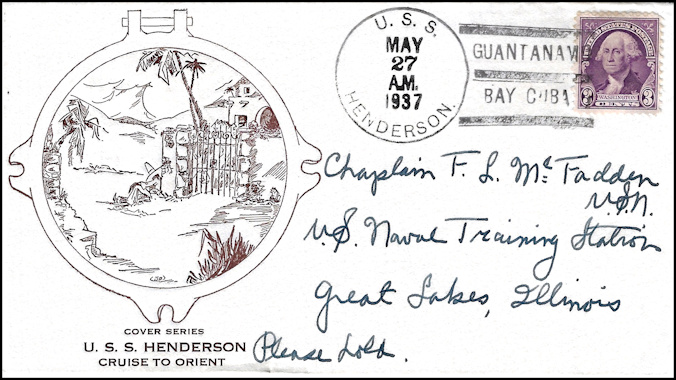 U. S. S.
MAY
27
A.M.
1937
HENDERSON.
GUANTANAM
BAY CUBA
3¢ UNITED STATES POSTAGE 3¢
WASHINGTON
3 3
Chaplain F. L. McFadden
U.S.N.
U.S. Naval Training Station
Great Lakes, Illinois
Please hold.
COVER SERIES
U. S. S. HENDERSON
CRUISE TO ORIENT